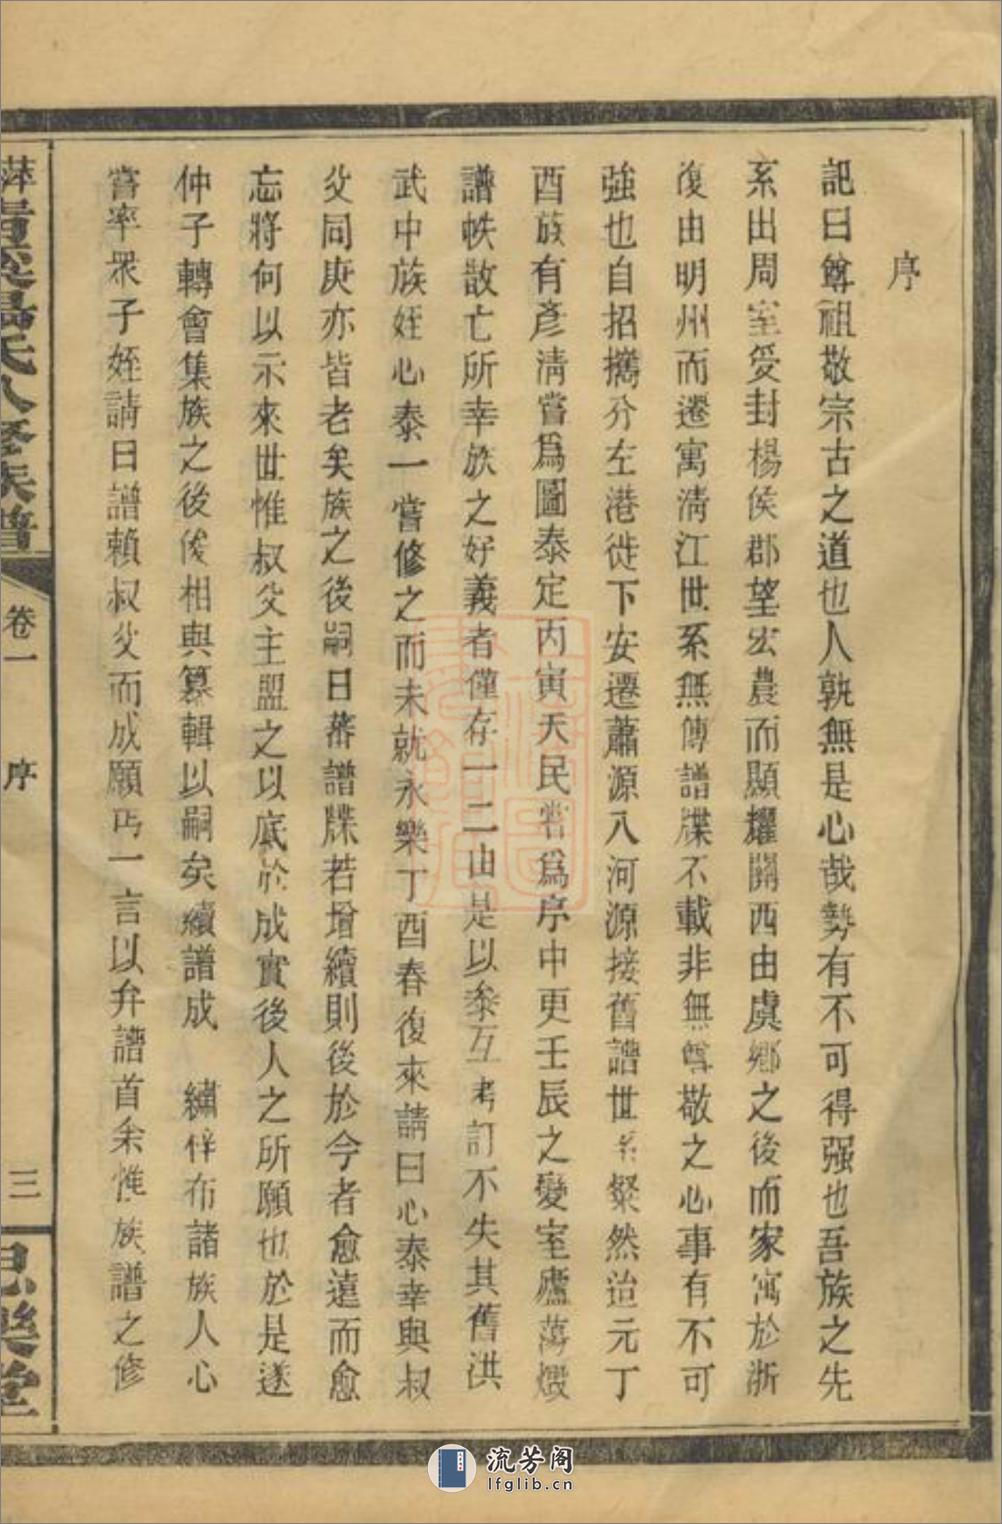 序
記曰尊祖敬宗古之道也人孰無是心哉勢有不可得强也吾族之先
系出周室受封楊侯郡望宏農而顯耀關西由虞鄉之後而家寓於浙
復由明州而遷寓清江世系無傳譜牒不載非無尊敬之心事有不可
強也自招攜分左港徙下安遷蕭源八河源接舊譜世系粲然迨元丁
酉族有彥清嘗爲圖泰定丙寅天民嘗爲序中更壬辰之變室廬蕩燬
譜帙散亡所幸族之好義者僅存一二由是以參互考訂不失其舊洪
武中族姪心泰一嘗修之而未就永樂丁酉春復來請曰心泰幸與叔
父同庚亦皆老矣族之後嗣日蕃譜牒若增續則後於今者愈遠而愈
忘將何以示來世惟叔父主盟之以底於成實後人之所願也於是遂
仲子轉會集族之後俊相與纂輯以嗣矣續譜成 繡梓布諸族人心
嘗率眾子姪請曰譜賴叔父而成願丐一言以弁譜首余惟族譜之修
氏八修族譜
卷一
序
三
樂堂
流芳阁
lfglib.cn